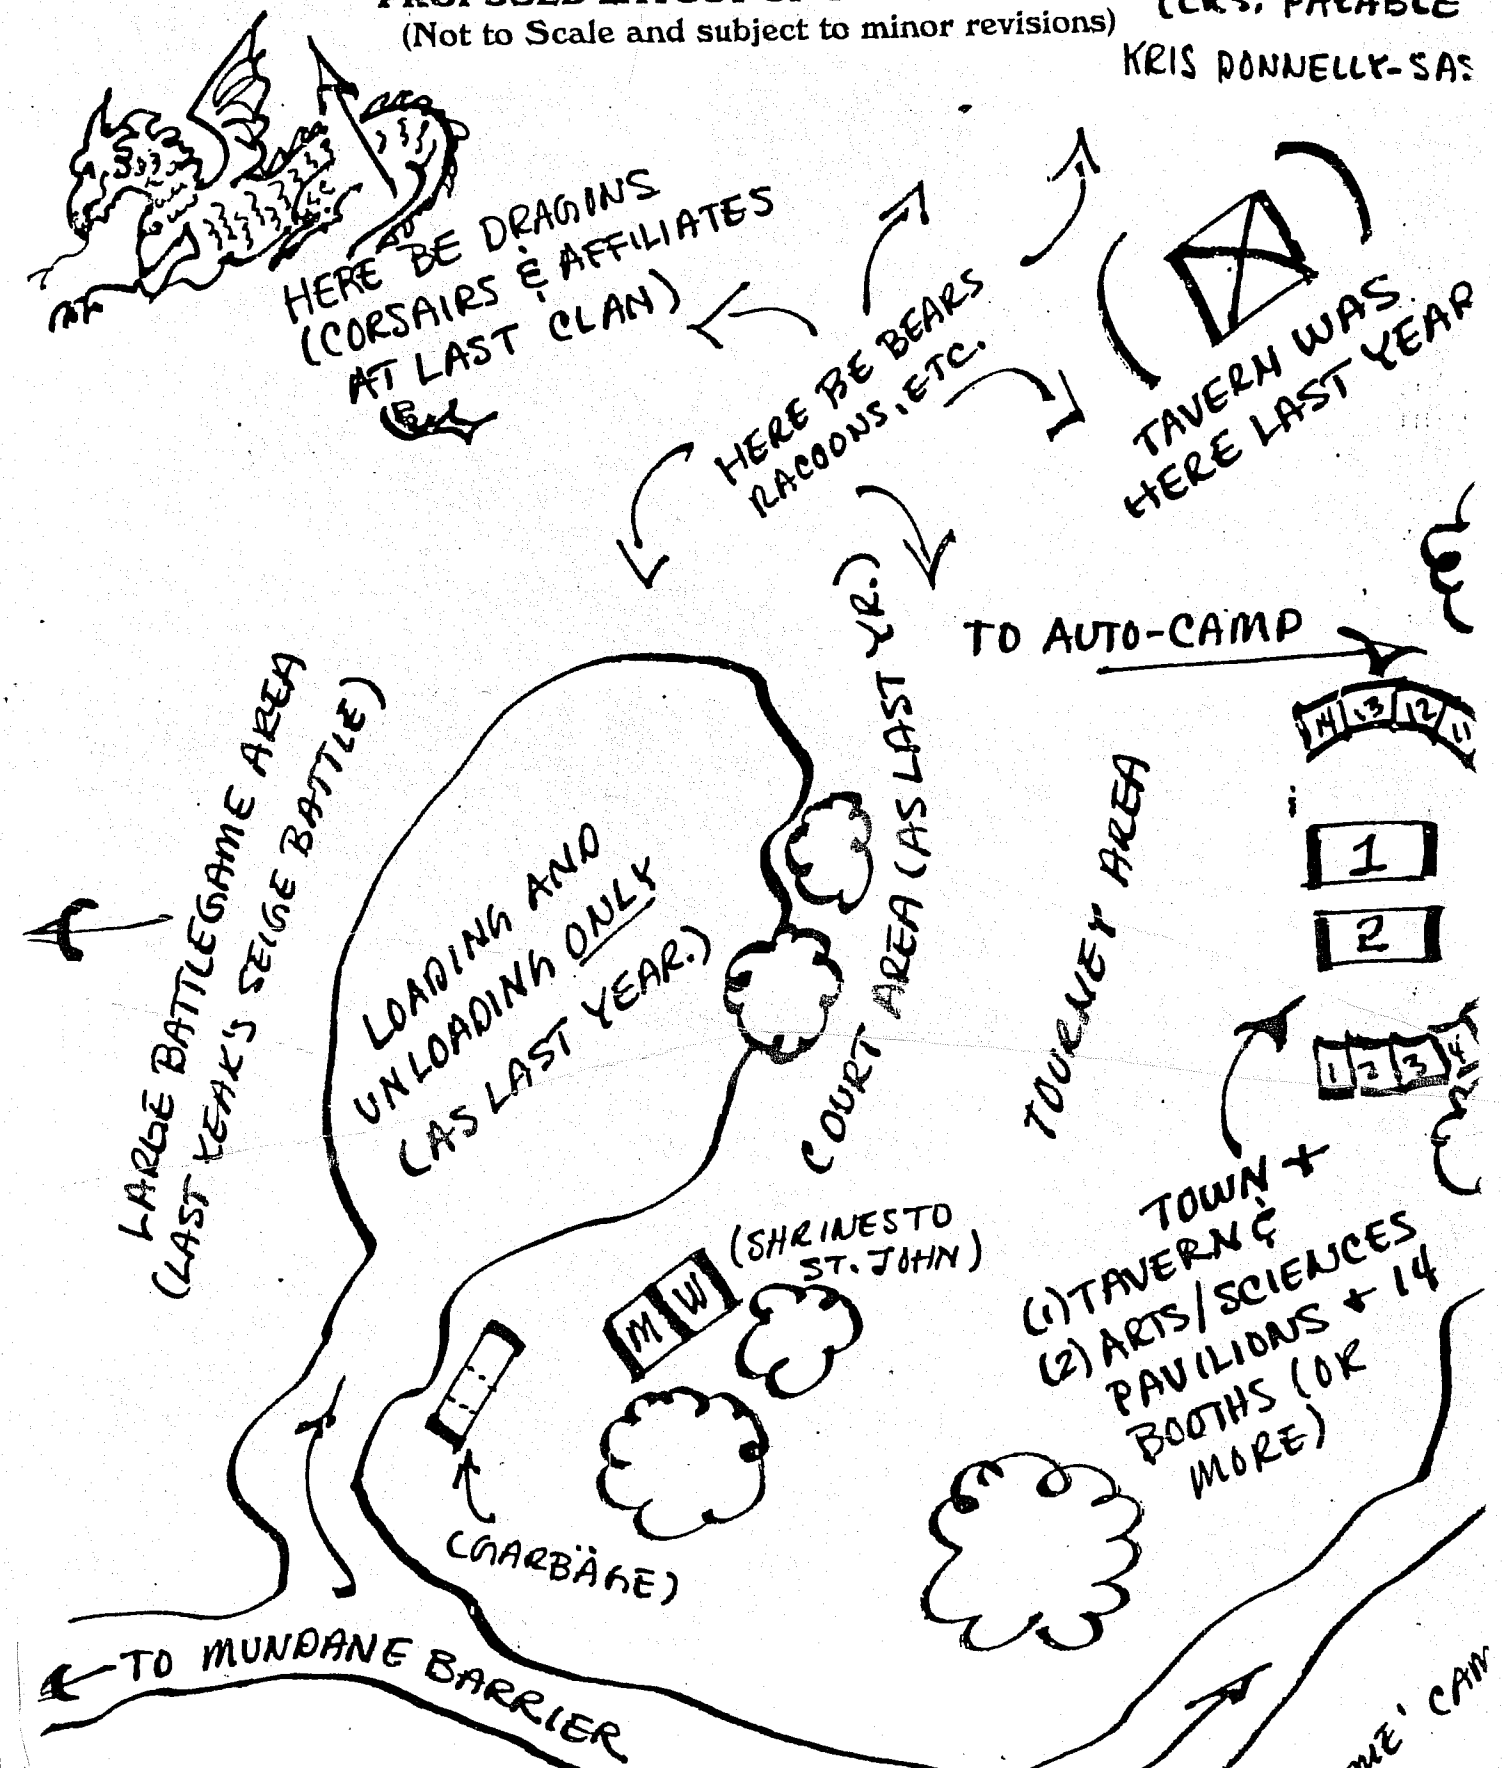 (Not to Scale and subject to minor revisions)
PAYABLE
KRIS DONNELLY-SAS
HERE BE DRAGONS
(CORSAIRS & AFFILIATES
AT LAST CLAN)
HERE BE BEARS
RACOONS, ETC.
TAVERN WAS
HERE LAST YEAR
TO AUTO-CAMP
14 13 12 11
1
2
1 2 3 4
LARGE BATTLEGAME AREA
(LAST YEAR'S SEIGE BATTLE)
LOADING AND
UNLOADING ONLY
(AS LAST YEAR.)
COURT AREA (AS LAST YR.)
TOURNEY AREA
(SHRINES TO
ST. JOHN)
M W
TOWN +
(1) TAVERN &
(2) ARTS/SCIENCES
PAVILIONS + 14
BOOTHS (OR
MORE)
(GARBÄGE)
TO MUNDANE BARRIER